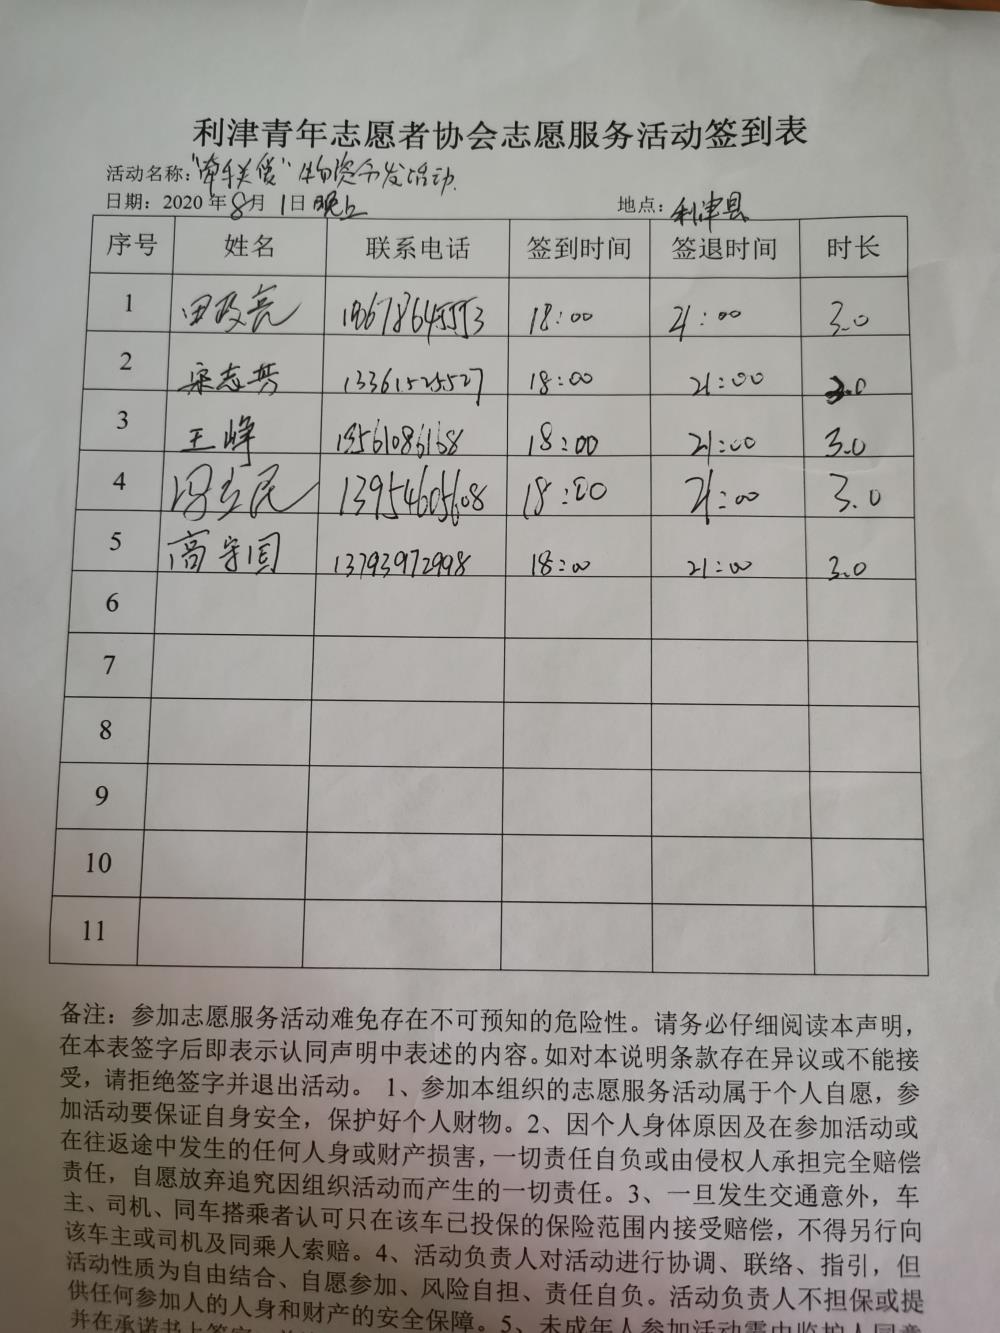 利津青年志愿者协会志愿服务活动签到表
活动名称：“牵手关爱”物资分发活动
日期：2020年8月1日晚上 地点：利津县
序号 姓名 联系电话 签到时间 签退时间 时长
1 田 亮 18:00 21:00 3.0
2 宋志芳 13361525527 18:00 21:00 3.0
3 王峰 18:00 21:00 3.0
4 冯立民 13954605608 18:00 21:00 3.0
5 高守国 13793972998 18:00 21:00 3.0
6
7
8
9
10
11
备注：参加志愿服务活动难免存在不可预知的危险性。请务必仔细阅读本声明，
在本表签字后即表示认同声明中表述的内容。如对本说明条款存在异议或不能接
受，请拒绝签字并退出活动。 1、参加本组织的志愿服务活动属于个人自愿，参
加活动要保证自身安全，保护好个人财物。2、因个人身体原因及在参加活动或
在往返途中发生的任何人身或财产损害，一切责任自负或由侵权人承担完全赔偿
责任，自愿放弃追究因组织活动而产生的一切责任。3、一旦发生交通意外，车
主、司机、同车搭乘者认可只在该车已投保的保险范围内接受赔偿，不得另行向
该车主或司机及同乘人索赔。4、活动负责人对活动进行协调、联络、指引，但
活动性质为自由结合、自愿参加、风险自担、责任自负。活动负责人不担保或提
供任何参加人的人身和财产的安全保障。5、未成年人参加活动需由监护人同意
并在承诺书上签字